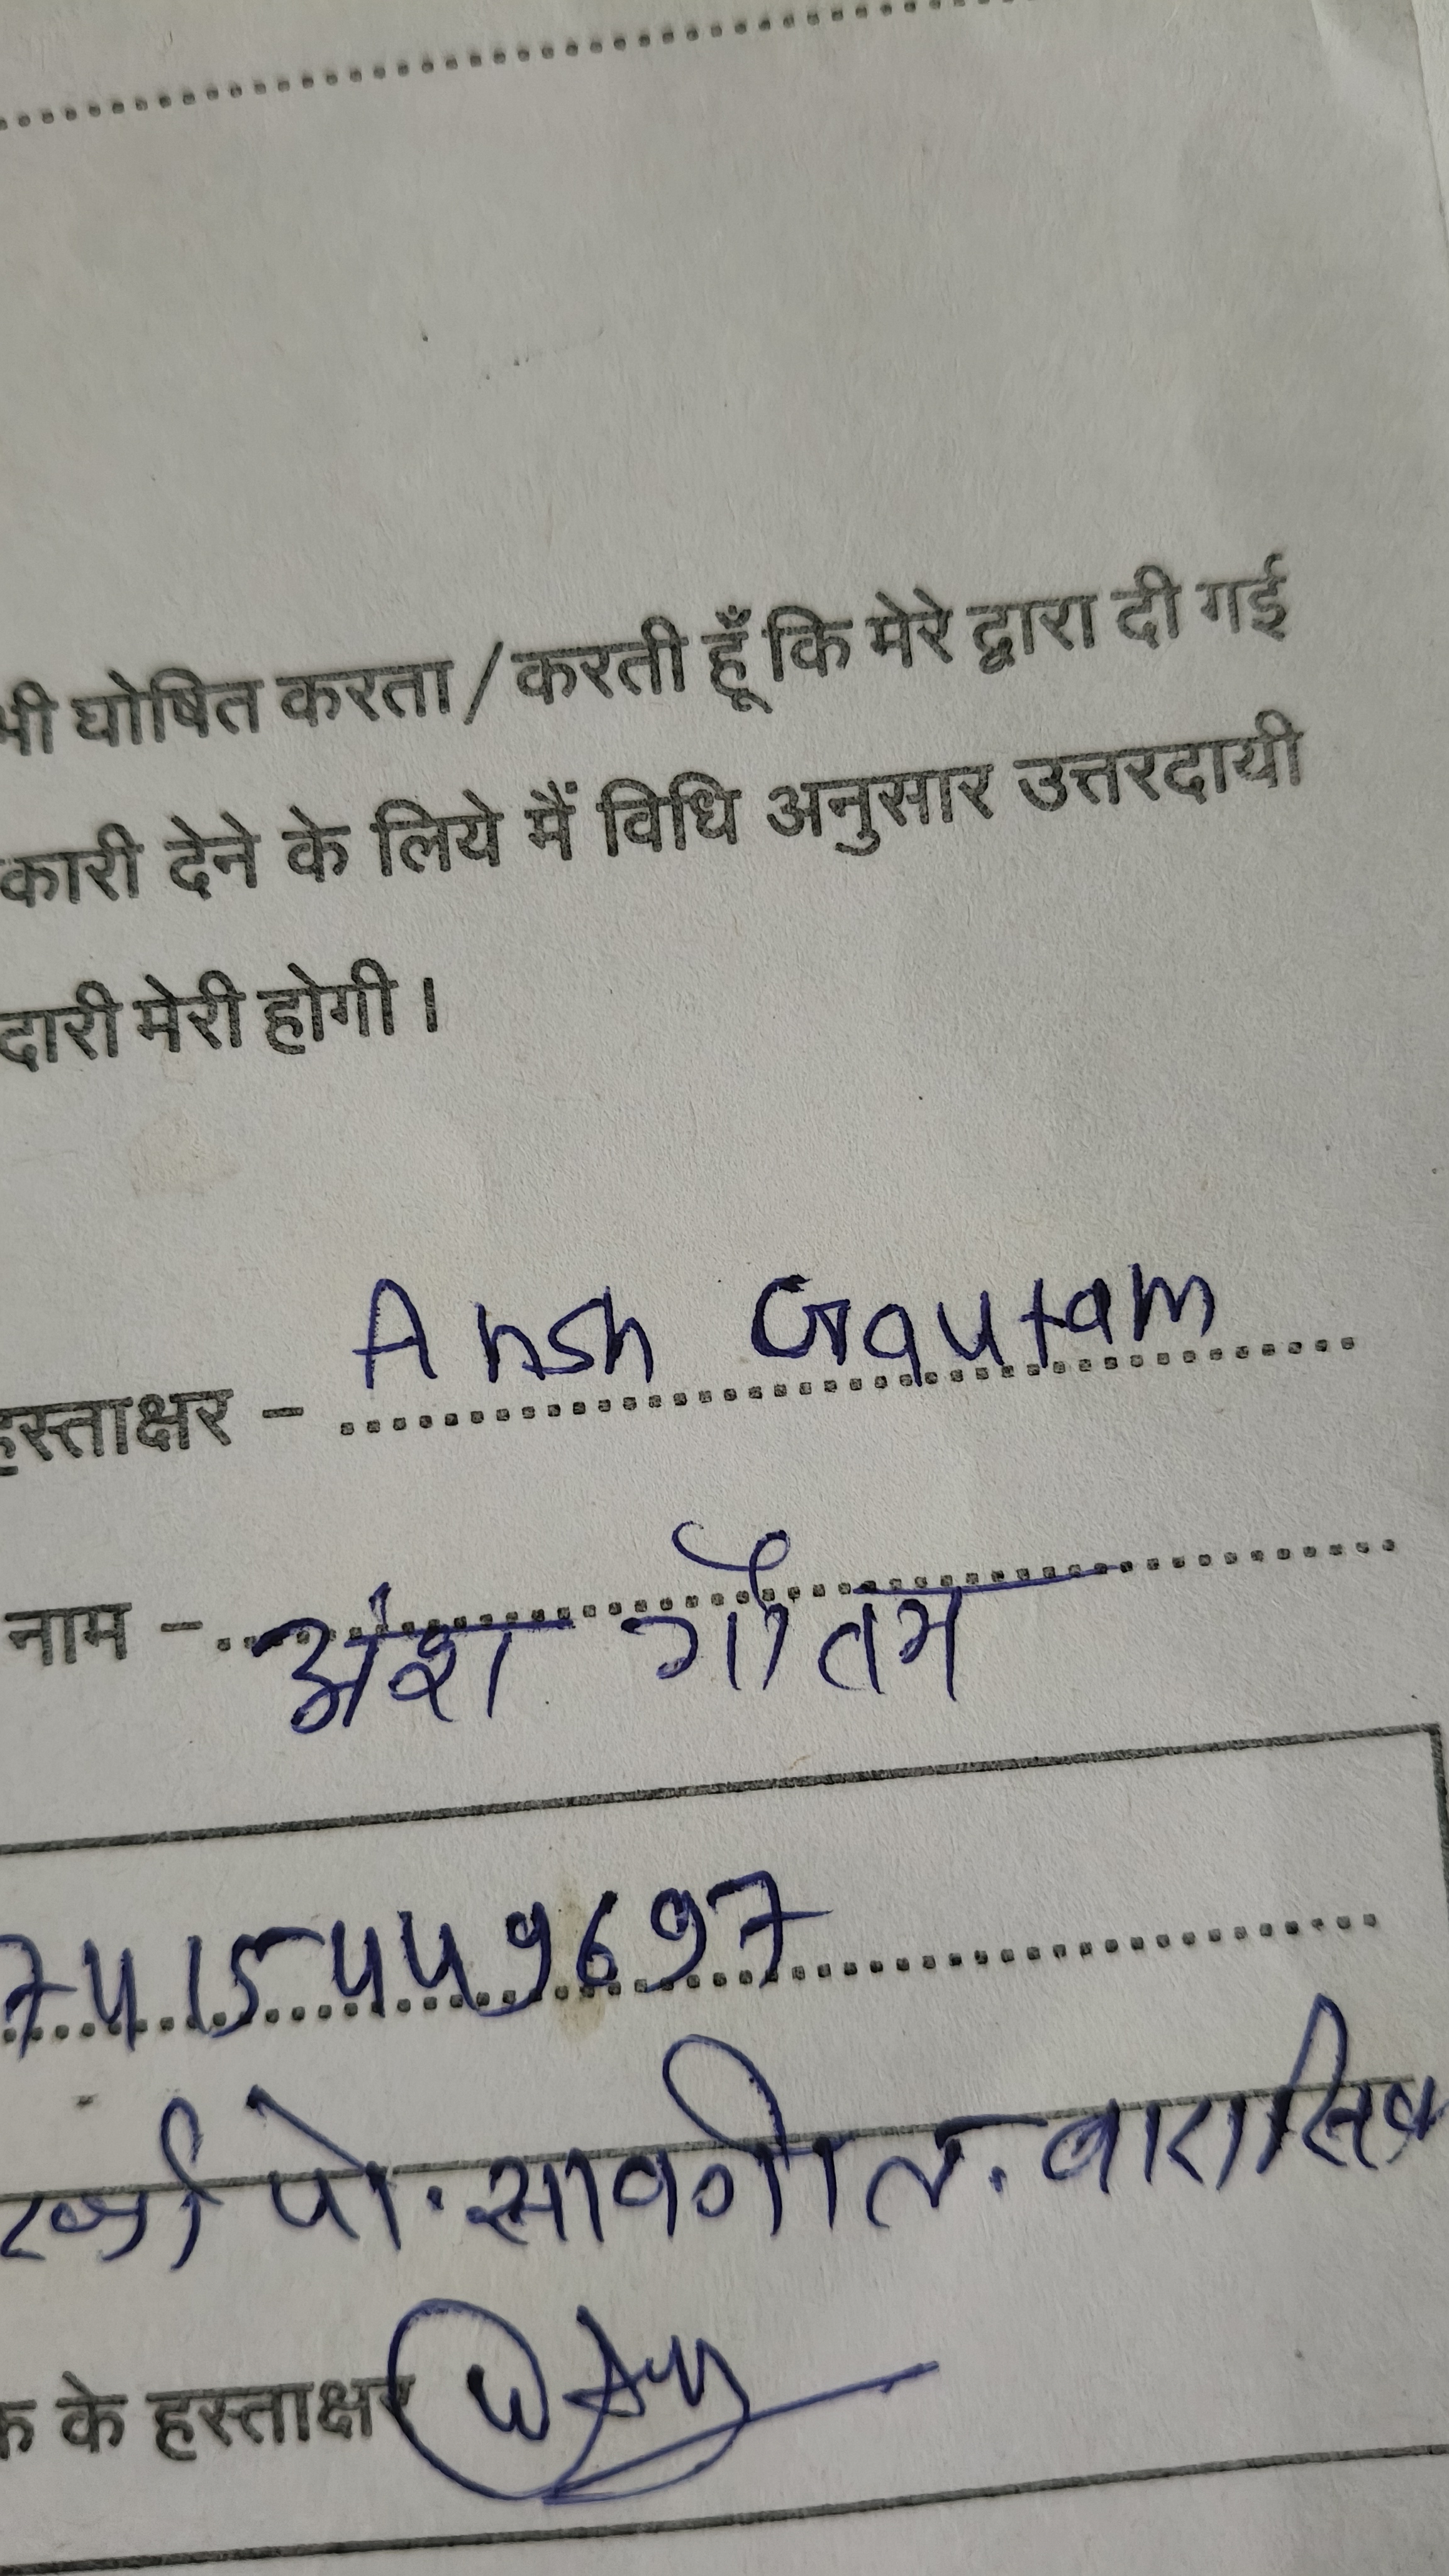 भी घोषित करता / करती हूँ कि मेरे द्वारा दी गई
कारी देने के लिये मैं विधि अनुसार उत्तरदायी
दारी मेरी होगी।
हस्ताक्षर - Ansh Gautam
नाम - अंश गौतम
7415449697
पो. सावगी त. वारासिव
क के हस्ताक्षर